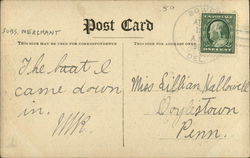 50
SUBS. MERCHANT
Post Card
THIS SIDE MAY BE USED FOR CORRESPONDENCE
THIS SIDE IS FOR THE ADDRESS
The boat I
came down
in.
Miss Lillian Hallowell
Doylestown
Penn.